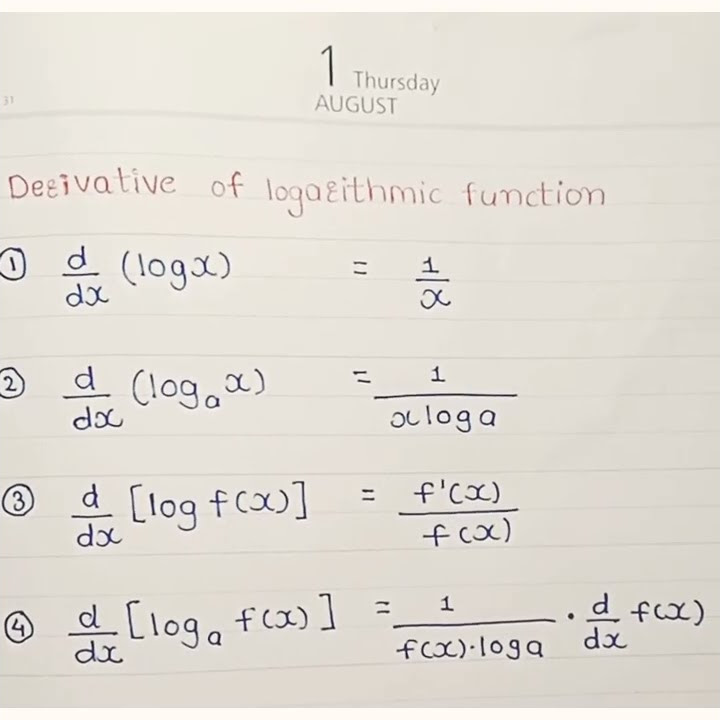 1 Thursday
AUGUST
31
Derivative of logarithmic function
① d/dx (log x) = 1/x
② d/dx (logₐ x) = 1/(x log a)
③ d/dx [log f(x)] = f'(x)/f(x)
④ d/dx [logₐ f(x)] = 1/(f(x)·log a) · d/dx f(x)